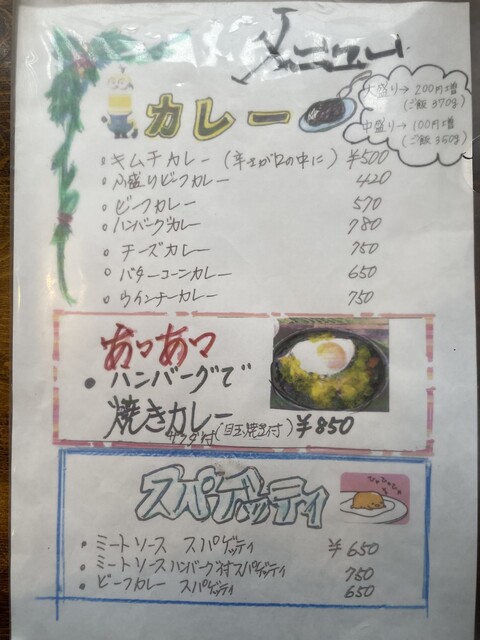 メニュー
カレー
大盛り→200円増
(ご飯370g)
中盛り→100円増
(ご飯350g)
・キムチカレー(辛さが口の中に) ¥500
・小盛りビーフカレー 420
・ビーフカレー 570
・ハンバーグカレー 780
・チーズカレー 750
・バターコーンカレー 650
・ウインナーカレー 750
あつあつ
・ハンバーグで
焼きカレー
サラダ付(目玉焼き付) ¥850
スパゲッティ
・ミートソース スパゲッティ ¥650
・ミートソースハンバーグ付スパゲッティ 750
・ビーフカレー スパゲッティ 650